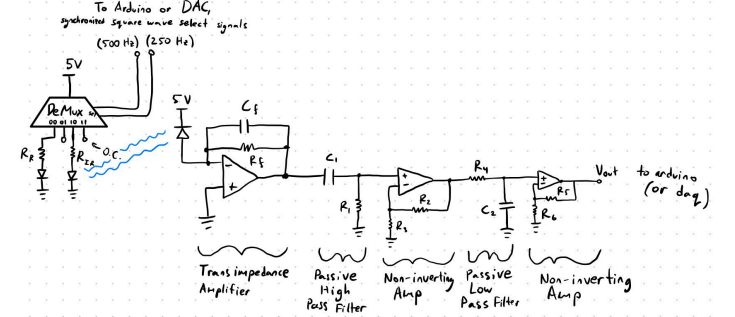 To Arduino or DAC,
synchronized square wave select signals
(500 Hz) (250 Hz)
5V
DeMux
00 01 10 11
O.C.
R_R
R_IR
5V
C_f
R_f
C_1
R_1
R_2
R_3
R_4
C_2
R_5
R_6
Vout
to arduino
(or daq)
Transimpedance
Amplifier
Passive
High
Pass Filter
Non-inverting
Amp
Passive
Low
Pass Filter
Non-inverting
Amp